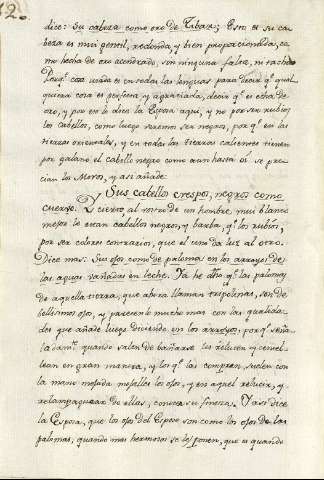 12.
dice: su cabeza como oro de Tibar; Esto es su ca
beza es mui gentil, redonda, y bien proporcionada, co
mo hecha de oro acendrado, sin ninguna falta, ni tacha
Porqᵉ cosa usada es en todas las lenguas para decir qᵉ qual
quiera cosa es perfecta y agraciada, decir qᵉ es echa de
oro, y por eso lo dice la Esposa aqui, y no por ser rubios
los cabellos, como luego veremos ser negros, porqᵉ en las
tierras orientales, y en todas las tierras calientes tienen
por galano el cabello negro como aun hasta oi se pre
cian los Moros, y asi añade
Sus cabellos crespos, negros como
cuervo. Y cierto al rostro de un hombre, mui blanco
mejor le estan cabellos negros, y barba, qᵉ los rubios,
por ser colores contrarios, que el uno da luz al otro.
Dice mas: Sus ojos como de paloma en los arroyos de
las aguas vañadas en leche. Ya he dho qᵉ las palomas
de aquella tierra, que ahora llaman tripolinas, son de
bellisimos ojos, y parecenlo mucho mas con las qualida
des que añade luego diciendo en los arroyos, porqᵉ seña
ladamᵗᵉ quando salen de bañarse les relucen y cente
llean en gran manera, y los qᵉ las compran suelen con
la mano mojada mojalles los ojos, y en aquel relucir, y
relampaguear de ellos, conocen su fineza. Y asi dice
la Esposa, que los ojos del Esposo son como los ojos de las
palomas, quando mas hermosos se les ponen, que es quando